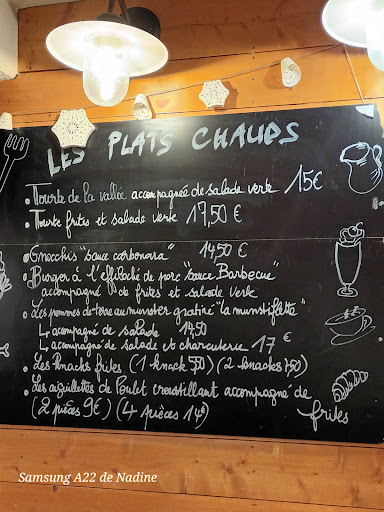 LES PLATS CHAUDS
• Tourte de la vallée accompagnée de salade verte 15€
• Tourte frites et salade verte 17,50 €
• Gnocchis "sauce carbonara" 14,50 €
• Burger à l'effiloché de porc "sauce Barbecue"
accompagné de frites et salade verte
• Les pommes de terre au munster gratiné "la munstiflette"
↳ accompagné de salade 14,50
↳ accompagné de salade et charcuterie 17 €
• Les Knacks frites (1 knack 5,50) (2 knacks 7,50)
• Les aiguillettes de Poulet croustillant accompagné de
frites
(2 pièces 9€) (4 pièces 14€)
Samsung A22 de Nadine